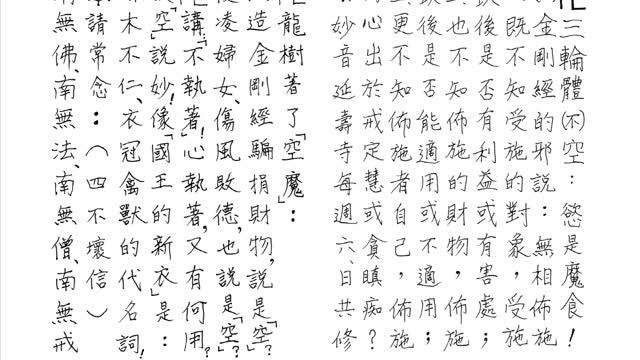 三輪體(不)空：慾是魔食！
金剛經的邪說：無相佈施
既不知受施的對象，受施
後是否有利益或有害，處
也不知佈施的財物，佈施；
後是否能適用或不適用；
更不知佈施者自己，佈施
心出於戒定慧或貪瞋痴？
妙音延壽寺每週六、日共修
龍樹著了「空魔」：
造金剛經騙捐財物，說是「空」？
凌婦女、傷風敗德，也說是「空」？
講「不執著」！心執著，又有何用？
「空」說妙！像「國王的新衣」是：
木不仁、衣冠禽獸的代名詞！
請常念：（四不壞信）
無佛、南無法、南無僧、南無戒